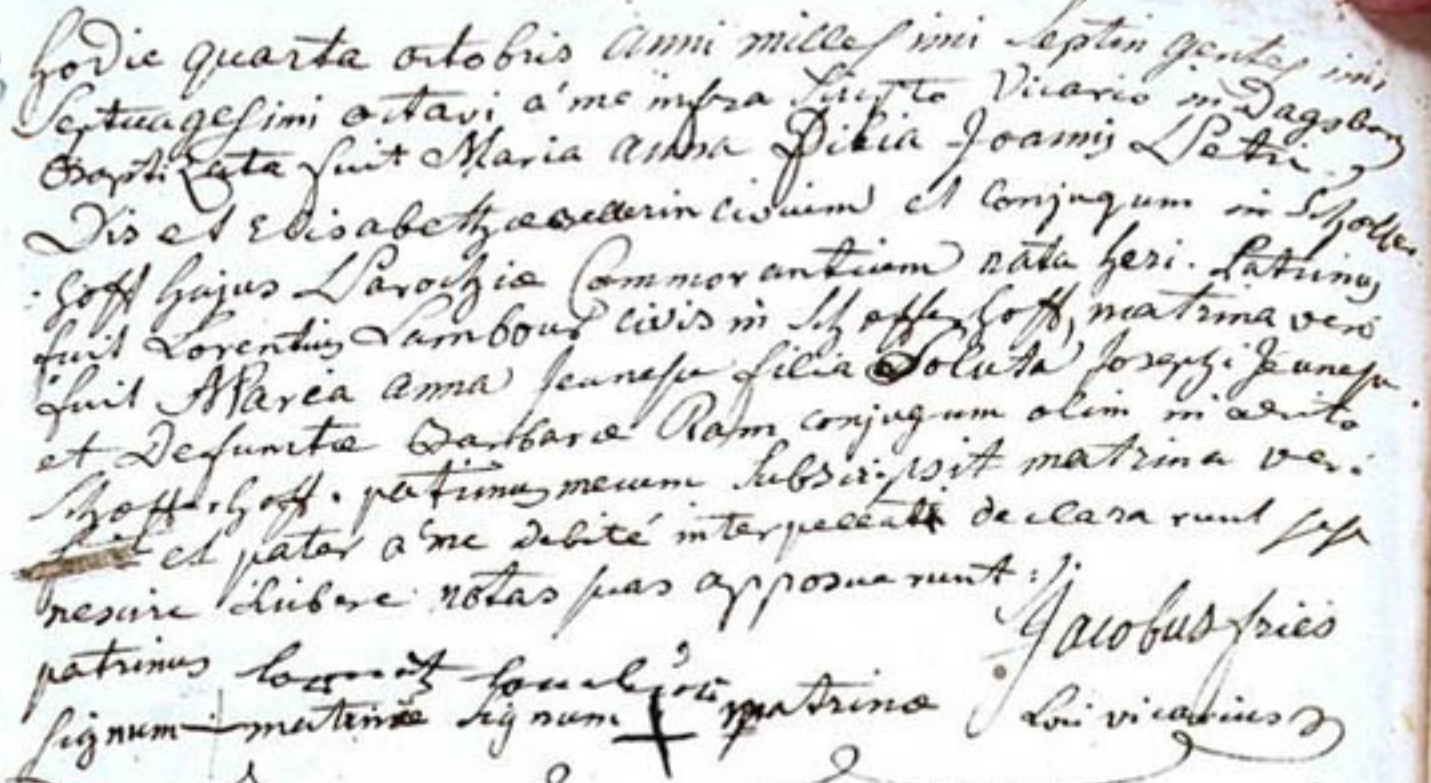 hodie quarta octobris anni millesimi septingentesimi
septuagesimi octavi a me infra scripto Vicario in Dagsburg
Baptizata fuit Maria anna filia Joannis Petri
Dis et Elisabethæ civium et conjugum in Schoffer
hoff hujus Parochiæ Commorantium nata heri. Patrinus
fuit Lorentius Lambour civis in Schofferhoff, matrina vero
fuit Maria anna Jeunesse filia Soluta Josephi Jeunesse
et Defunctæ Barbaræ Ram conjugum olim in dicto
Schofferhoff. patrinus mecum subscripsit matrina vero
et pater a me debité interpellati declararunt sese
nescire scribere notas suas apposuerunt :
Jacobus fries
patrinus lorentz
signum matrinæ signum + matrinæ
Loci vicarius